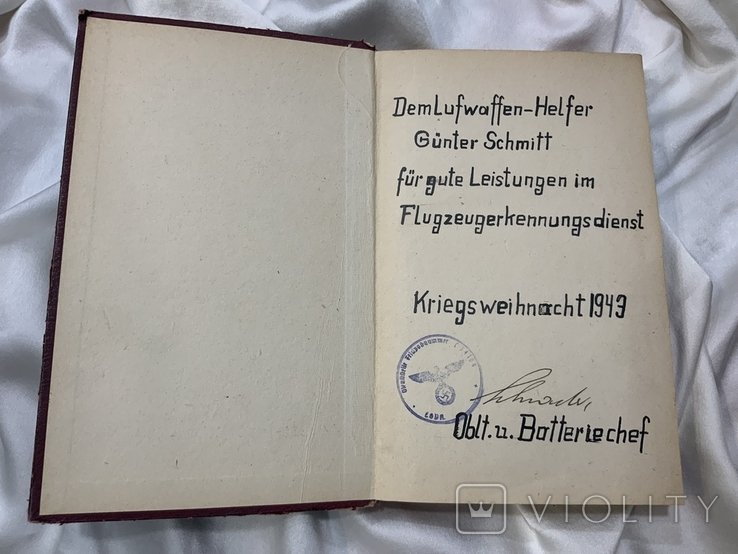 Dem Lufwaffen-Helfer
Günter Schmitt
für gute Leistungen im
Flugzeugerkennungsdienst
Kriegsweihnacht 1943
Dienststelle Feldpostnummer
LGPA
Oblt. u. Batteriechef
VIOLITY